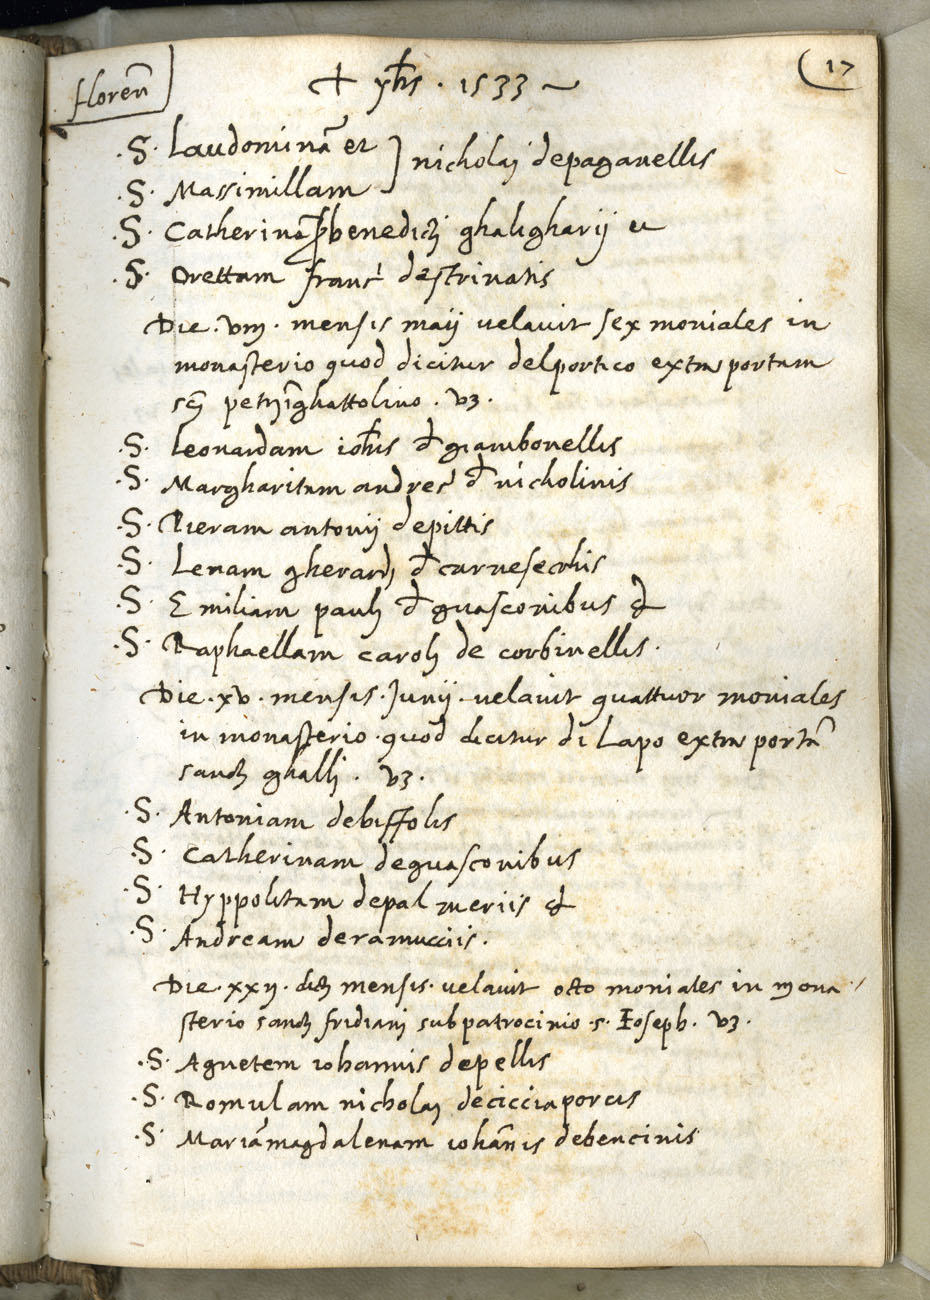 Floreñ
+ yhs · 1533 ~
17
·S· Laudominā et
nicholaj depaganellis
·S· Massimillam
·S· Catherinā benedictj ghaligharij et
·S· Orettam franc' destrinatis
Die · viij · mensis maij velavit sex moniales in
monasterio quod dicitur delportico extra portam
scj petrj ī ghattolino · vz ·
·S· Leonardam iohis d giambonellis
·S· Margharitam andree d nicholinis
·S· Pieram antonij depittis
·S· Lenam gherardj d carnesechis
·S· Emiliam paulj d guasconibus &
·S· Raphaellam carolj de corbinellis ·
Die · xv · mensis · Junij · velavit quattuor moniales
in monasterio · quod dicitur di Lapo extra portā
sanctj ghallj · vz ·
·S· Antoniam debiffolis
·S· Catherinam deguasconibus
·S· Hyppolitam depalmeriis &
·S· Andream deramucciis ·
Die · xxij · dictj mensis · velavit octo moniales in mona
sterio sanctj fridianj subpatrocinio · s · Ioseph · vz ·
·S· Agnetem iohannis depellis
·S· Romulam nicholaj decicciaporcis
·S· Mariāmagdalenam iohānis debencinis